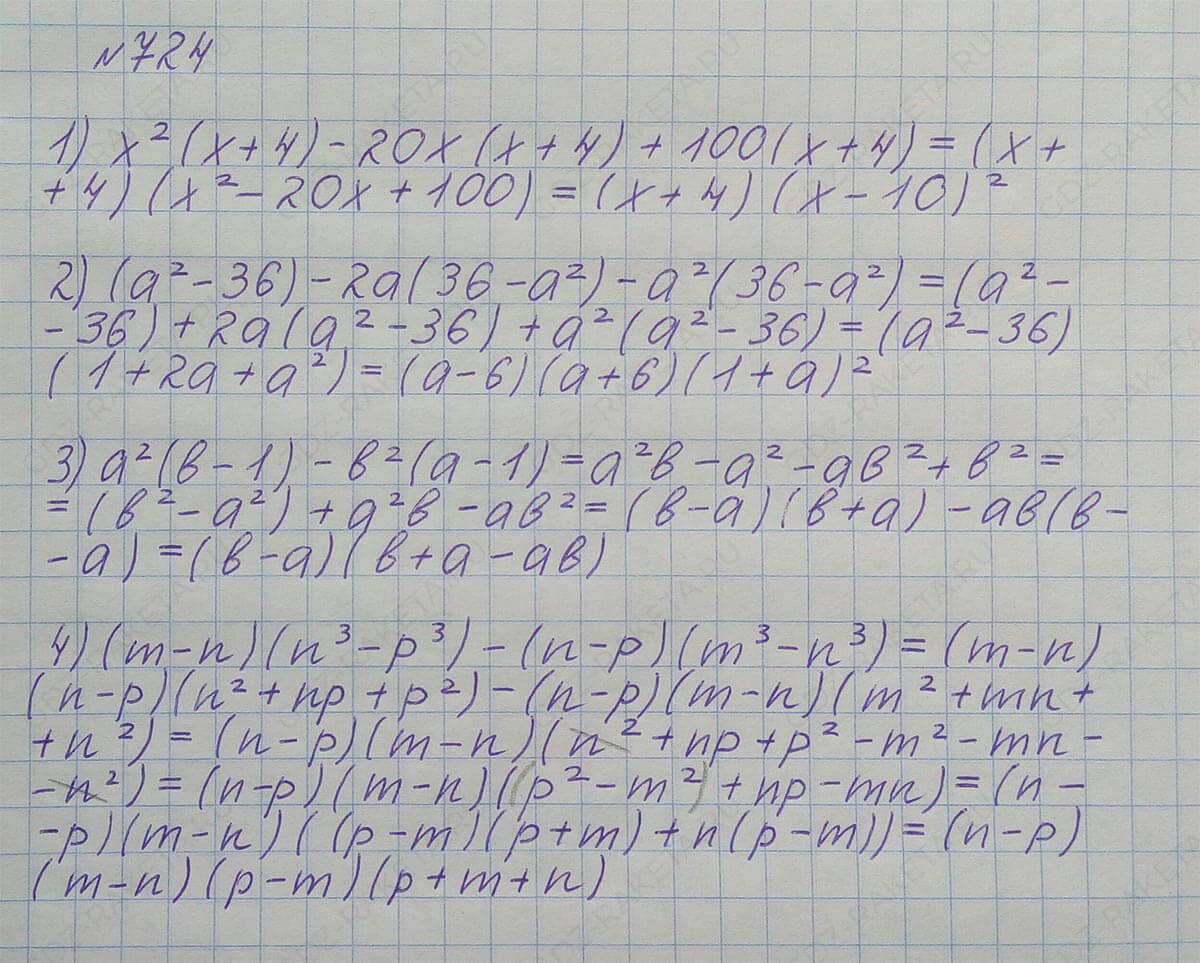 №724
1) x²(x+4)-20x(x+4)+100(x+4)=(x+
+4)(x²-20x+100)=(x+4)(x-10)²
2) (a²-36)-2a(36-a²)-a²(36-a²)=(a²-
-36)+2a(a²-36)+a²(a²-36)=(a²-36)
(1+2a+a²)=(a-6)(a+6)(1+a)²
3) a²(в-1)-в²(a-1)=a²в-a²-aв²+в²=
=(в²-a²)+a²в-aв²=(в-a)(в+a)-aв(в-
-a)=(в-a)(в+a-aв)
4) (m-n)(n³-p³)-(n-p)(m³-n³)=(m-n)
(n-p)(n²+np+p²)-(n-p)(m-n)(m²+mn+
+n²)=(n-p)(m-n)(n²+np+p²-m²-mn-
-n²)=(n-p)(m-n)((p²-m²)+np-mn)=(n-
-p)(m-n)((p-m)(p+m)+n(p-m))=(n-p)
(m-n)(p-m)(p+m+n)
GDZ-RAKETA.RU